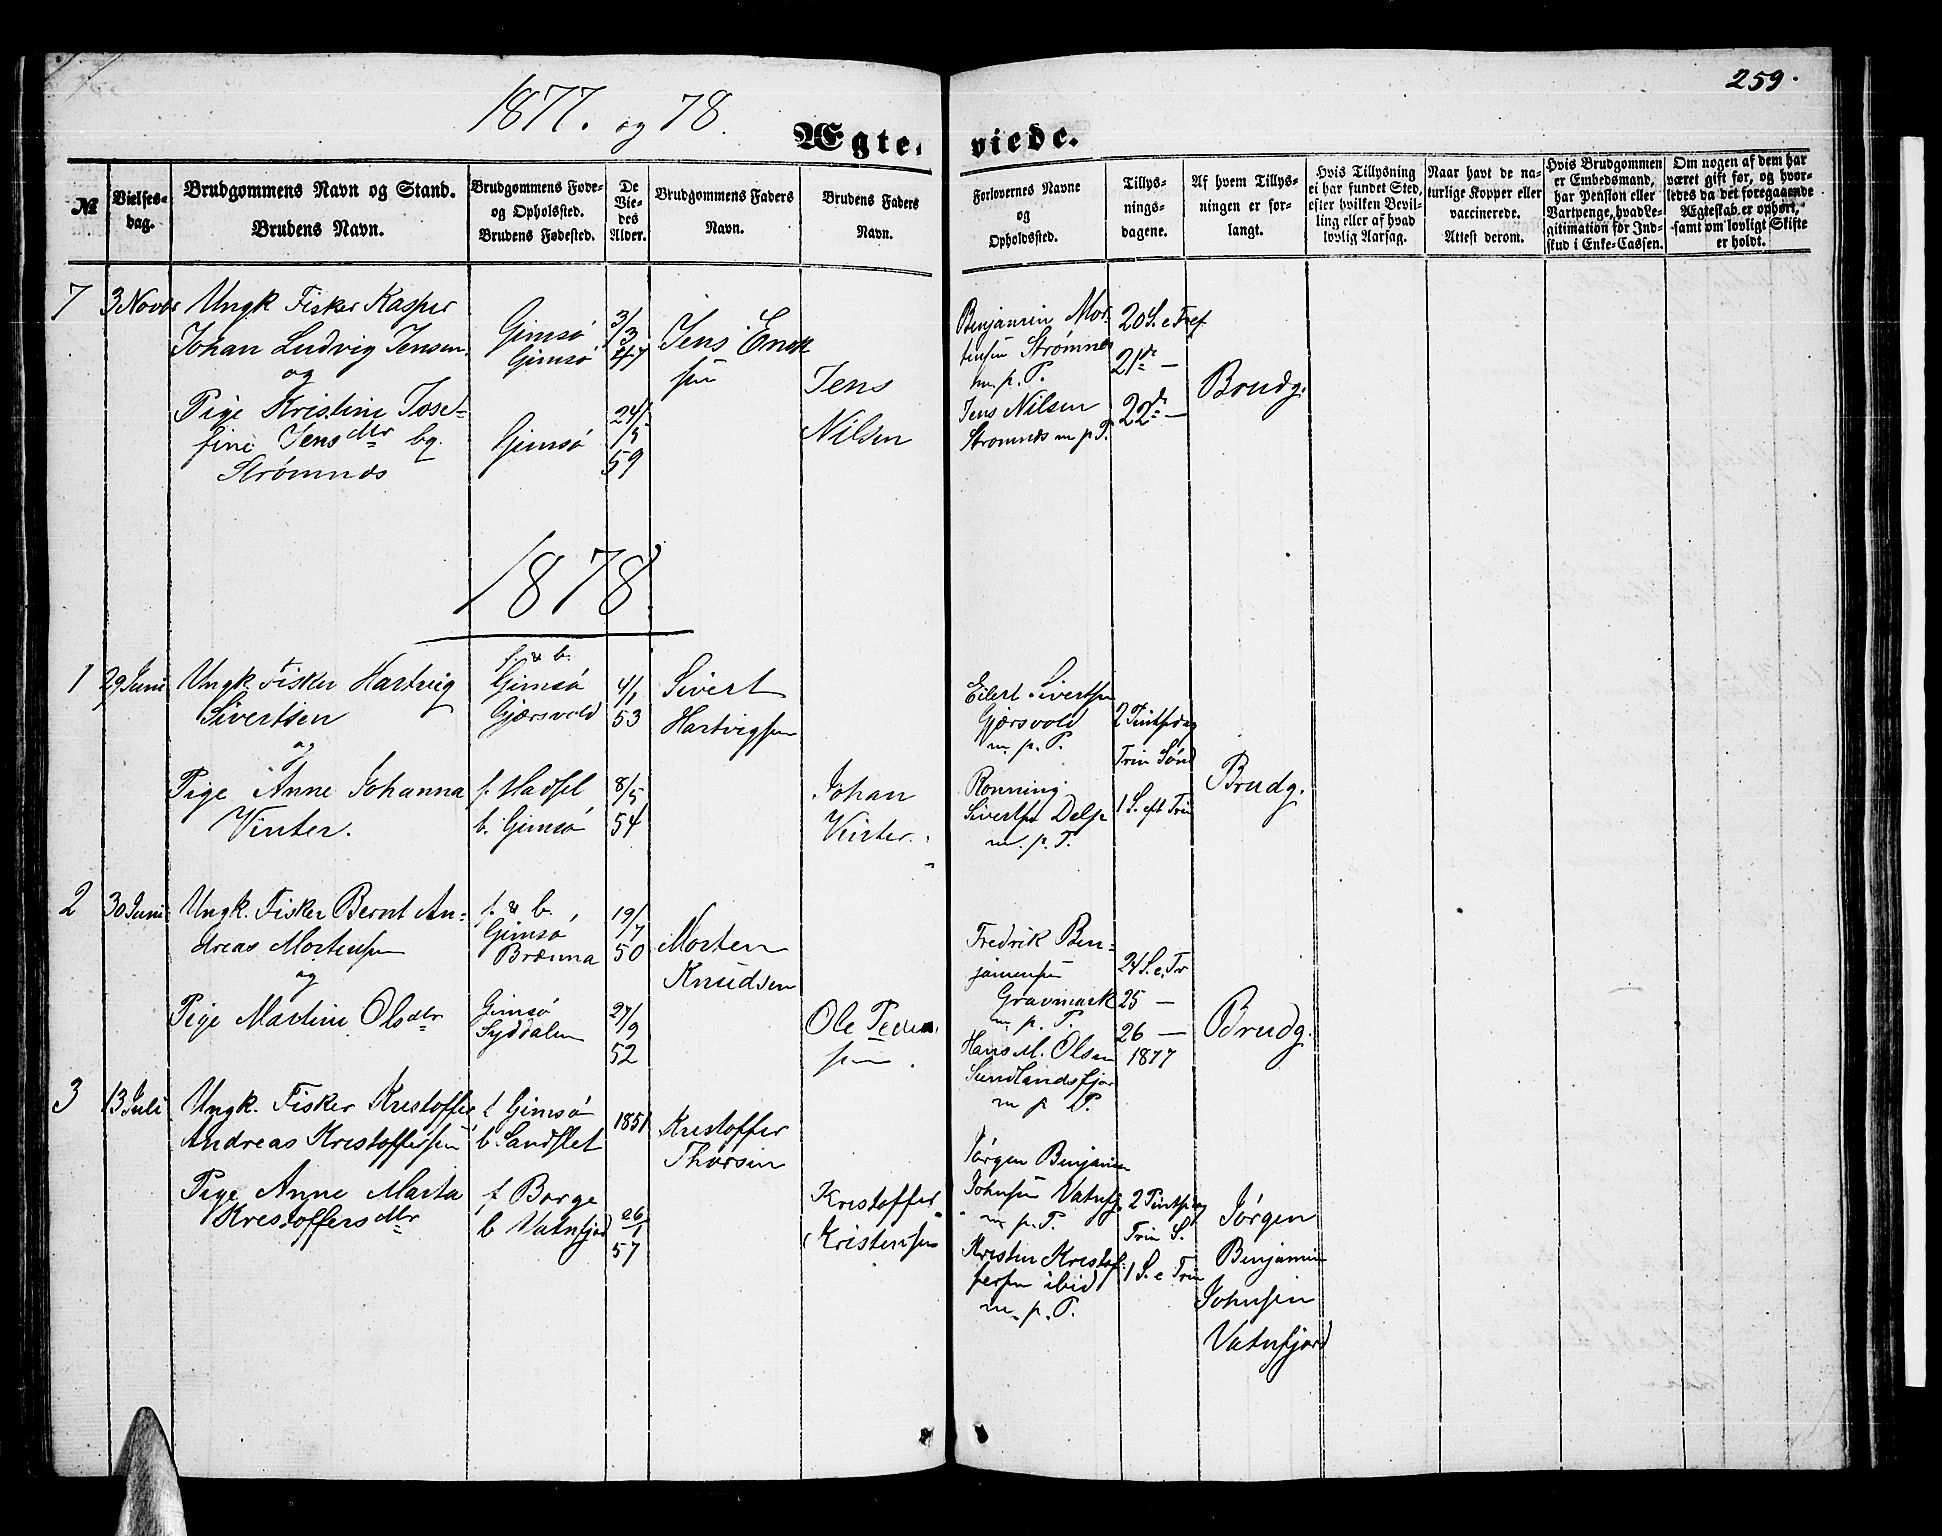 259.
1877. og 78.
Ægte- viede.
№
Vielses-
dag.
Brudgommens Navn og Stand.
Brudens Navn.
Brudgommens Føde-
og Opholdsted.
Brudens Fødested.
De
Vie-
des
Alder.
Brudgommens Faders
Navn.
Brudens Faders
Navn.
Forlovernes Navne
og
Opholdssted.
Tillys-
nings-
dagene.
Af hvem Tillys-
ningen er for-
langt.
Hvis Tillysning
ei har fundet Sted,
efter hvilken Bevil-
ling eller af hvad
lovlig Aarsag.
Naar havt de na-
turlige Kopper eller
vaccinerede.
Attest derom.
Hvis Brudgommen
er Embedsmand,
har Pension eller
Vartpenge, hvad Le-
gitimation for Ind-
skud i Enke-Cassen.
Om nogen af dem har
været gift før, og hvor-
ledes da det foregaaende
Ægteskab er ophørt,
samt om lovligt Skifte
er holdt.
7
3 Novbr
Ungk Fisker Kasper
Johan Ludvig Jensen
og
Pige Kristine Jose-
fine Jensdtr bg.
Strømnes
Gimsø
Gimsø
Gimsø
3/3
47
24/
/5
59
Jens
sen
Jens
Nilsen
Benjamin Mor-
tensen Strømnes
m. p. P.
Jens Nilsen
Strømnes m p P.
20 S. e Tref
21de —
22de —
Brudg.
1878
1
29 Juni
Ungk. Fisker Hartvig
Sivertsen
og
Pige Anne Johanna
Vinter.
f. & b.
Gimsø
Gjærsvold
f. Hadsel
b. Gimsø
4/1
53
8/5
54
Sivert
Hartvigsen
Johan
Vinter.
Eilert Sivertsen
Gjærsvold
m. p. P.
Rønning
Sivertsen
m. p. P.
2 Pintsedag
Trin Sønd
1 S. eft Trin
Brudg.
2
30 Juni
Ungk. Fisker Bernt An-
dreas Mortensen
og
Pige Martine Olsdtr
f. & b.
Gimsø
Brenna
Gimsø
Syddalen
19/7
50
27/9
52
Morten
Knudsen
Ole Peder-
sen
Fredrik Ben-
jaminsen
Gravmark
m. p. P.
Hans M. Olsen
Sundlandsfjor
m p P.
24 S. e. Tr
25 —
26 —
1877
Brudg.
3
13 Juli
Ungk. Fisker Kristoffer
Andreas Kristoffersen
Pige Anne Marta
Kristoffersdtr
f Gimsø
b. Sandslet
f Borge
b Vatnfjord
1851
26/1
57
Kristoffer
Thorsen
Kristoffer
Kristensen
Jørgen Benjamin
Johnsen Vatnfj.
m. p. P.
Kristen Kristof-
fersen ibid
m. p. P.
2 Pintsedag
Trin S.
1 S. e Trin
Jørgen
Benjamin
Johnsen
Vatnfjord